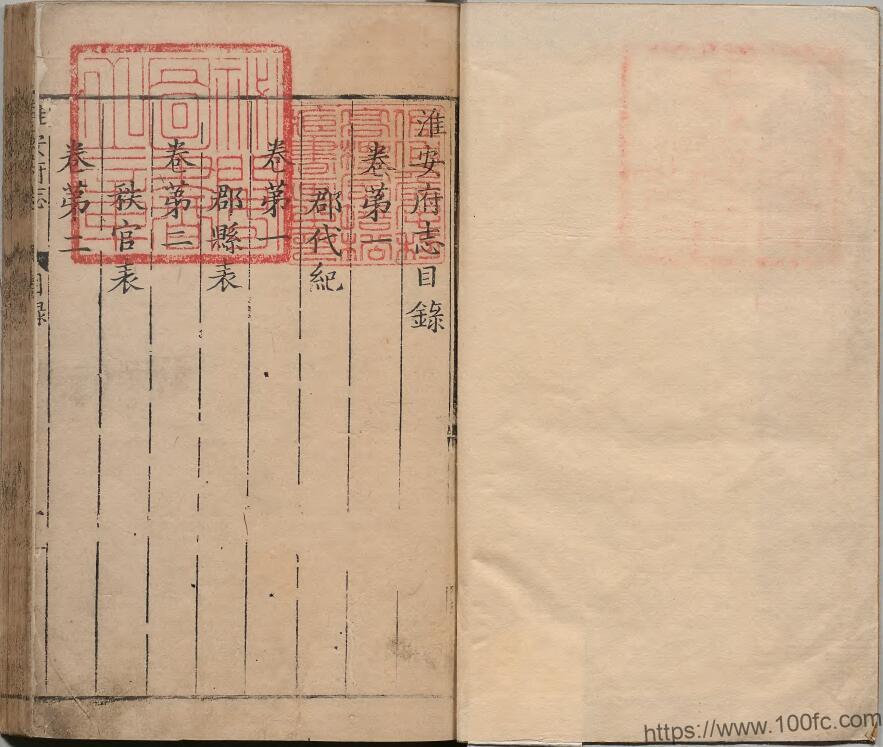 淮安府志目錄
卷第一
郡代紀
卷第一
郡縣表
卷第二
秩官表
卷第二
淮安府志
目錄
https://www.100fc.com